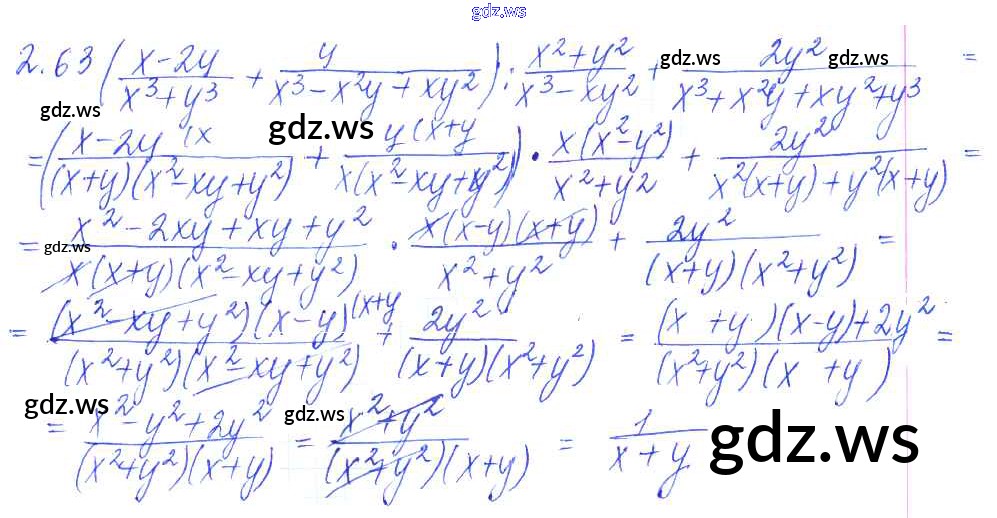 gdz.ws
2.63 ((x-2y)/(x³+y³) + y/(x³-x²y+xy²)) : (x²+y²)/(x³-xy²) + 2y²/(x³+x²y+xy²+y³) =
gdz.ws gdz.ws
gdz.ws gdz.ws
= ((x-2y (x)/((x+y)(x²-xy+y²)) + (y (x+y)/(x(x²-xy+y²))) · x(x²-y²)/(x²+y²) + 2y²/(x²(x+y)+y²(x+y)) =
= (x²-2xy+xy+y²)/(x(x+y)(x²-xy+y²)) · x(x-y)(x+y)/(x²+y²) + 2y²/((x+y)(x²+y²)) =
gdz.ws
= (x²-xy+y²)(x-y)(x+y/((x²+y²)(x²-xy+y²)) + 2y²/((x+y)(x²+y²)) = ((x+y)(x-y)+2y²)/((x²+y²)(x+y)) =
gdz.ws gdz.ws
= (x²-y²+2y²)/((x²+y²)(x+y)) = (x²+y²)/((x²+y²)(x+y)) = 1/(x+y)
gdz.ws